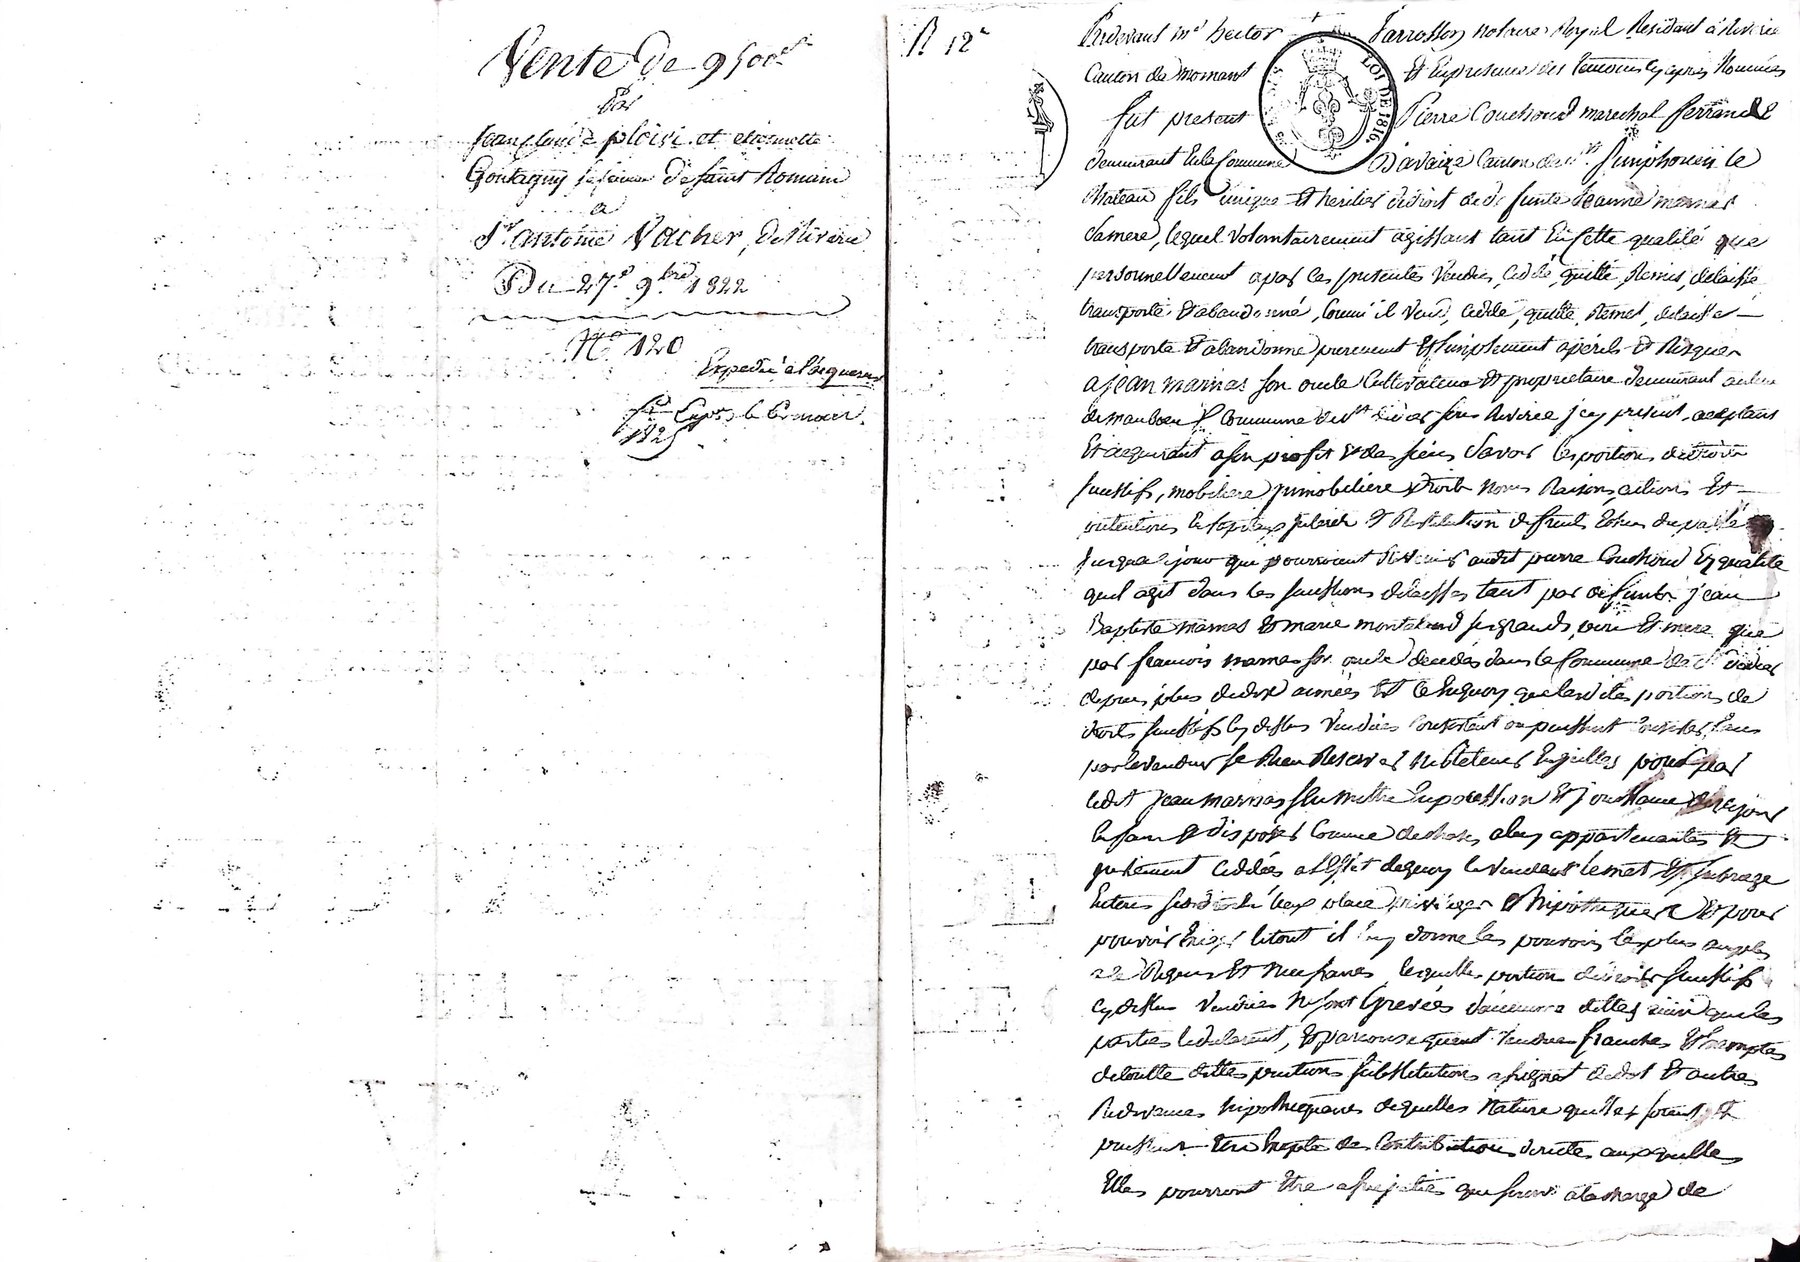 Vente De 9500fr
Par
Jean Claude ploivi et etiennette
Gontagny sa femme De saint Romain
a
Sr antoine Vacher, De Riverie
Du 27e 9bre 1822
No 120
Expedié a l'acquereur
1825
R 12e
Pardevant me hector Tarrosson notaire Royal Residant a Riverie
Canton de mornant Et En presence des temoins cy après Nommés
LOI DE 1816
fut present Pierre Couchoud marechal ferrand
demeurant En la Commune D'avaize Canton de st Simphorien le
Chateau fils unique Et heritier de droit de defunte Jeanne marnas
Sa mere, lequel volontairement agissant tant En cette qualité que
personnellement a par ces presentes vendu, Cedé, quitté, Remis, delaissé,
transporté Et abandonné, Comme il vend, Cede, quitte, Remet, delaisse
transporte Et abandonne purement Et simplement a perils Et Risques
a jean marnas son oncle Cultivateur Et proprietaire demeurant au lieu
de Commune de st didier sous Riverie icy present, acceptant
Et acquerant a son profit Et des siens Savoir les portions de droits
successifs, mobiliers immobiliers droits Noms Raisons actions Et
pretentions En Capitaux interets Et Restitution de fruits Echus du passé
jusqu'a ce jour qui pourroient Revenir audit pierre Couchoud En qualité
quil agit dans les successions delaissées tant par defunts jean
Baptiste marnas Et marie ses grands pere Et mere que
par francois marnas son oncle decedés dans la Commune de st didier
depuis plus de dix années Et En quoy que lesdites portions de
droits successifs cy dessus vendues Consistent ou puissent Consister, sans
par le vendeur se Rien Reserver Ni Retenir En icelles pour par
ledit jean marnas Se mettre En possession Et jouissance de ce jour
En faire Et disposer Comme de choses a luy appartenantes Et
purement Cedées a l'effet de quoy le vendeur le met Et subroge
En tous ses droits lieux place privileges Et hipotheques Et pour
pouvoir Exiger le tout il luy donne les pouvoirs les plus amples
Requis Et Necessaires lesquelles portions de droits successifs
Cy dessus vendues Ne sont Grevées d'aucunes dettes ainsi que les
parties le declarent, Et par consequent vendues franches Et Exemptes
de toutte dettes pentions substitutions douaire Et autres
Redevances hipothequaires de quelles Nature quelles soient Et
puissent Etre Excepté des Contributions directes auxquelles
Elles pourront Etre assujeties qui seront a la charge de